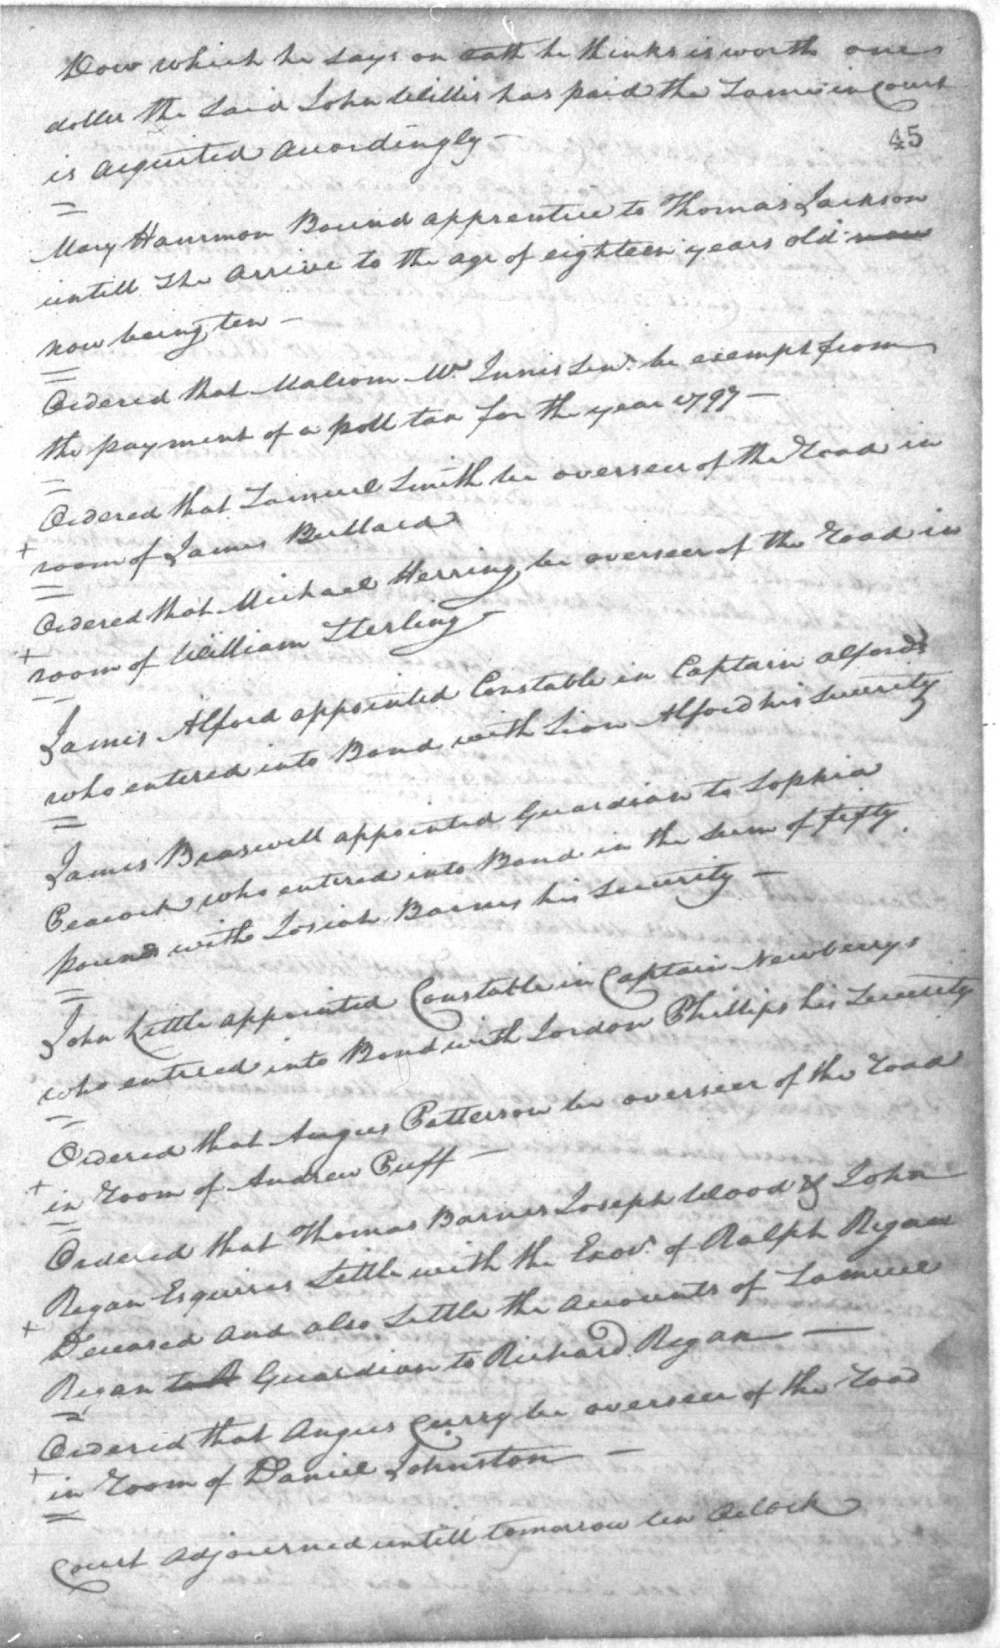 Cow which he says on oath he thinks is worth one
doller the said John Willis has paid the same in Court
is acquited accordingly —
45
Mary Haurmon Bound apprentice to Thomas Jackson
untill She arrive to the age of eighteen years old now
now being ten —
Ordered that Malcom Mc Innis Senr. be exempt from
the payment of a poll tax for the year 1797 —
Ordered that Samuel Smith be overseer of the Road in
+ room of James Bullard
Ordered that Michael Herring be overseer of the Road in
+ room of William Sterling —
James Alford appointed Constable in Captain alfords
who entered into Bond with Sion Alford his Security
James Braswell appointed Guardian to Sophia
Peacock who entered into Bond in the sum of fifty
pounds with Josiah Barnes his Security —
John Little appointed Constable in Captain Newberrys
who entered into Bond with Jordon Phillips his Security
Ordered that Angus Patterson be overseer of the Road
+ in Room of Andrew Puff —
Ordered that Thomas Barnes Joseph Wood & John
Regan Esquires Settle with the Exor. of Ralph Regan
+ Deceased and also Settle the accounts of Samuel
Regan to R Guardian to Richard Regan —
Ordered that Angus Curry be overseer of the Road
+ in Room of Daniel Johnston —
Court adjourned untill tomorrow ten Oclock